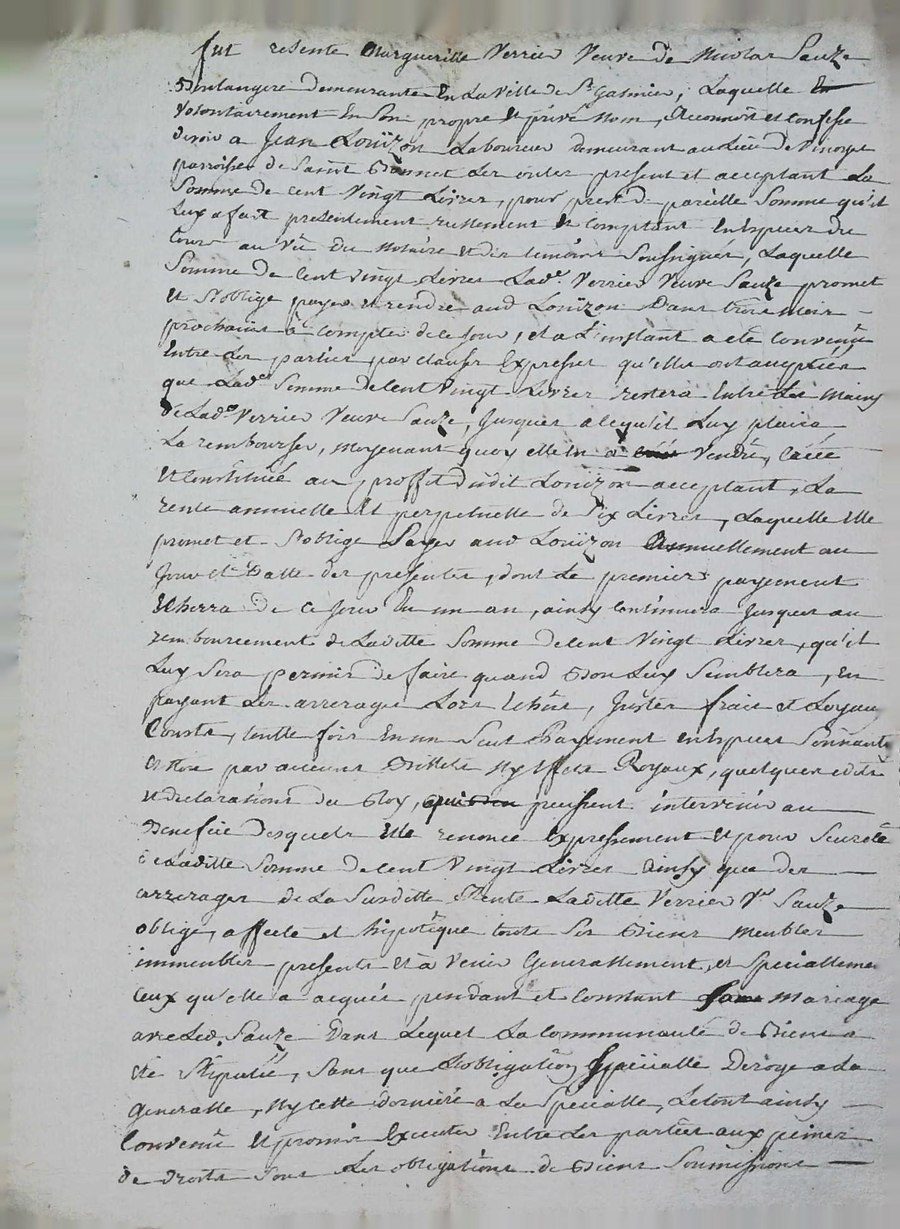 fut presente Marguerite Verrier Veuve de Nicolas Sauze
Boulangere demeurante En La Ville de St Galmier, Laquelle En
volontairement En Son propre Et privé Nom, Reconnoit et Confesse
devoir a Jean Louïzon Laboureur demeurant au Lieu de
parroisse de Saint Bonnet Les oules present et acceptant La
Somme de Cent Vingt Livres, pour prest de pareille Somme qu'il
Luy a fait presentement reellement Et Comptant En Especes du
Cours au Vû du Notaire et des temoins Soussignés, Laquelle
Somme de Cent vingt Livres Lade Verrier Veuve Sauze promet
Et S'oblige payer et rendre aud Louïzon Dans trois mois
prochains à Compter de ce Jour, et a L'instant a eté Convenû
Entre Les parties par clauses Expresses qu'elles ont acceptées
que Lade Somme de Cent Vingt Livres restera Entre Les Mains
de Lade Verrier Veuve Sauze, Jusques a ce qu'il Luy plaira
La rembourser, moyenant quoy elle En a Vendû, Cédé
Et Constitué au proffit dudit Louïzon acceptant, La
rente annuelle Et perpetuelle de Six Livres, Laquelle Elle
promet et S'oblige Payer aud Louïzon Annuellement au
Jour et Datte des presentes, dont Le premier payement
Echerra de ce Jour En un an, ainsy Continuera Jusques au
remboursement de Laditte Somme de Cent Vingt Livres, qu'il
Luy Sera permis de faire quand Bon Luy Semblera, En
payant Les arrerages Lors Echûs, Justes frais et Loyaux
Cousts, toutte fois En un Seul Payement en Especes Sonnantes
et Non par aucuns Billets Ny Effets Royaux, quelques edits
et declarations du Roy, qui en peussent intervenir au
Benefice Desquels Elle renonce Expressement Et pour Seureté
de Laditte Somme de Cent Vingt Livres ainsy que des
arrerages de La Susditte Rente Laditte Verrier Ve Sauze
oblige, affecte et hipotêque touts Ses Biens meubles
immeubles presents Et à Venir Generallement, et Speciallement
Ceux qu'elle a acquis pendant et Constant Son Mariage
avec Led. Sauze Dans Lequel La Communauté de Biens a
eté Stipulée, Sans que L'obligation Speciialle Deroge a La
Generalle, Ny cette derniere a La Specialle, Le tout ainsy
Convenû Et promis Executer Entre Les parties aux peines
de Droits Sous Les obligations de Biens Soumissions